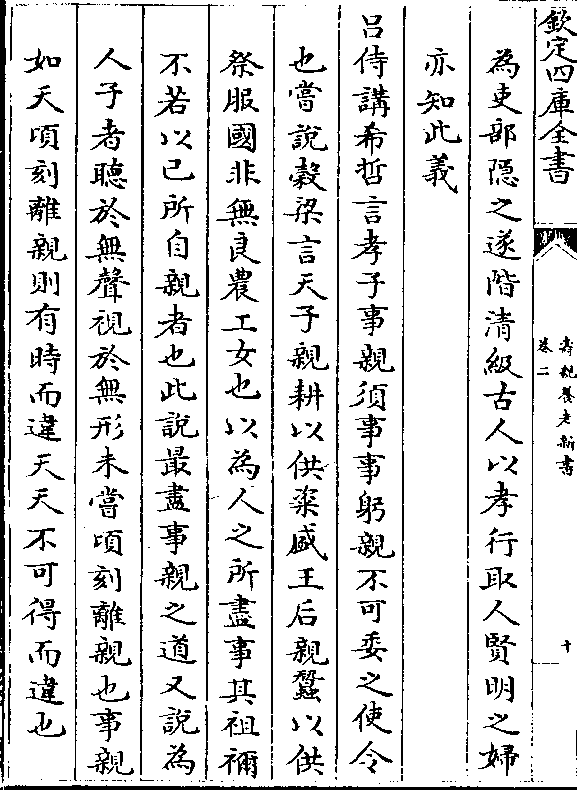 欽定四庫全書
壽親養老新書
卷二
十
為吏部隱之遂階清級古人以孝行取人賢明之婦
亦知此義
呂侍講希哲言孝子事親須事事躬親不可委之使令
也嘗說穀梁言天子親耕以供粢盛王后親蠶以供
祭服國非無良農工女也以為人之所盡事其祖禰
不若以己所自親者也此說最盡事親之道又說為
人子者聽於無聲視於無形未嘗頃刻離親也事親
如天頃刻離親則有時而違天天不可得而違也